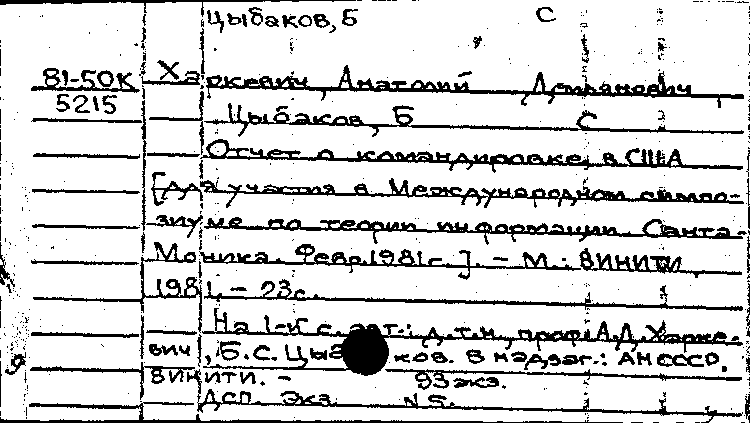 Цыбаков, Б С
81-50К Харкевич, Анатолий Демьянович,
5215 Цыбаков, Б С
Отчет о командировке в США
[для участия в Международном симпо-
зиуме по теории информации. Санта-
Моника. Февр. 1981 г.]. - М.: ВИНИТИ,
1981. - 23с.
На 1-й с. авт.: д.т.н., проф. А.Д. Харке-
вич, Б.С. Цыбаков. В надзаг.: АН СССР,
ВИНИТИ. - 93 экз.
ДСП. Экз. N 5.